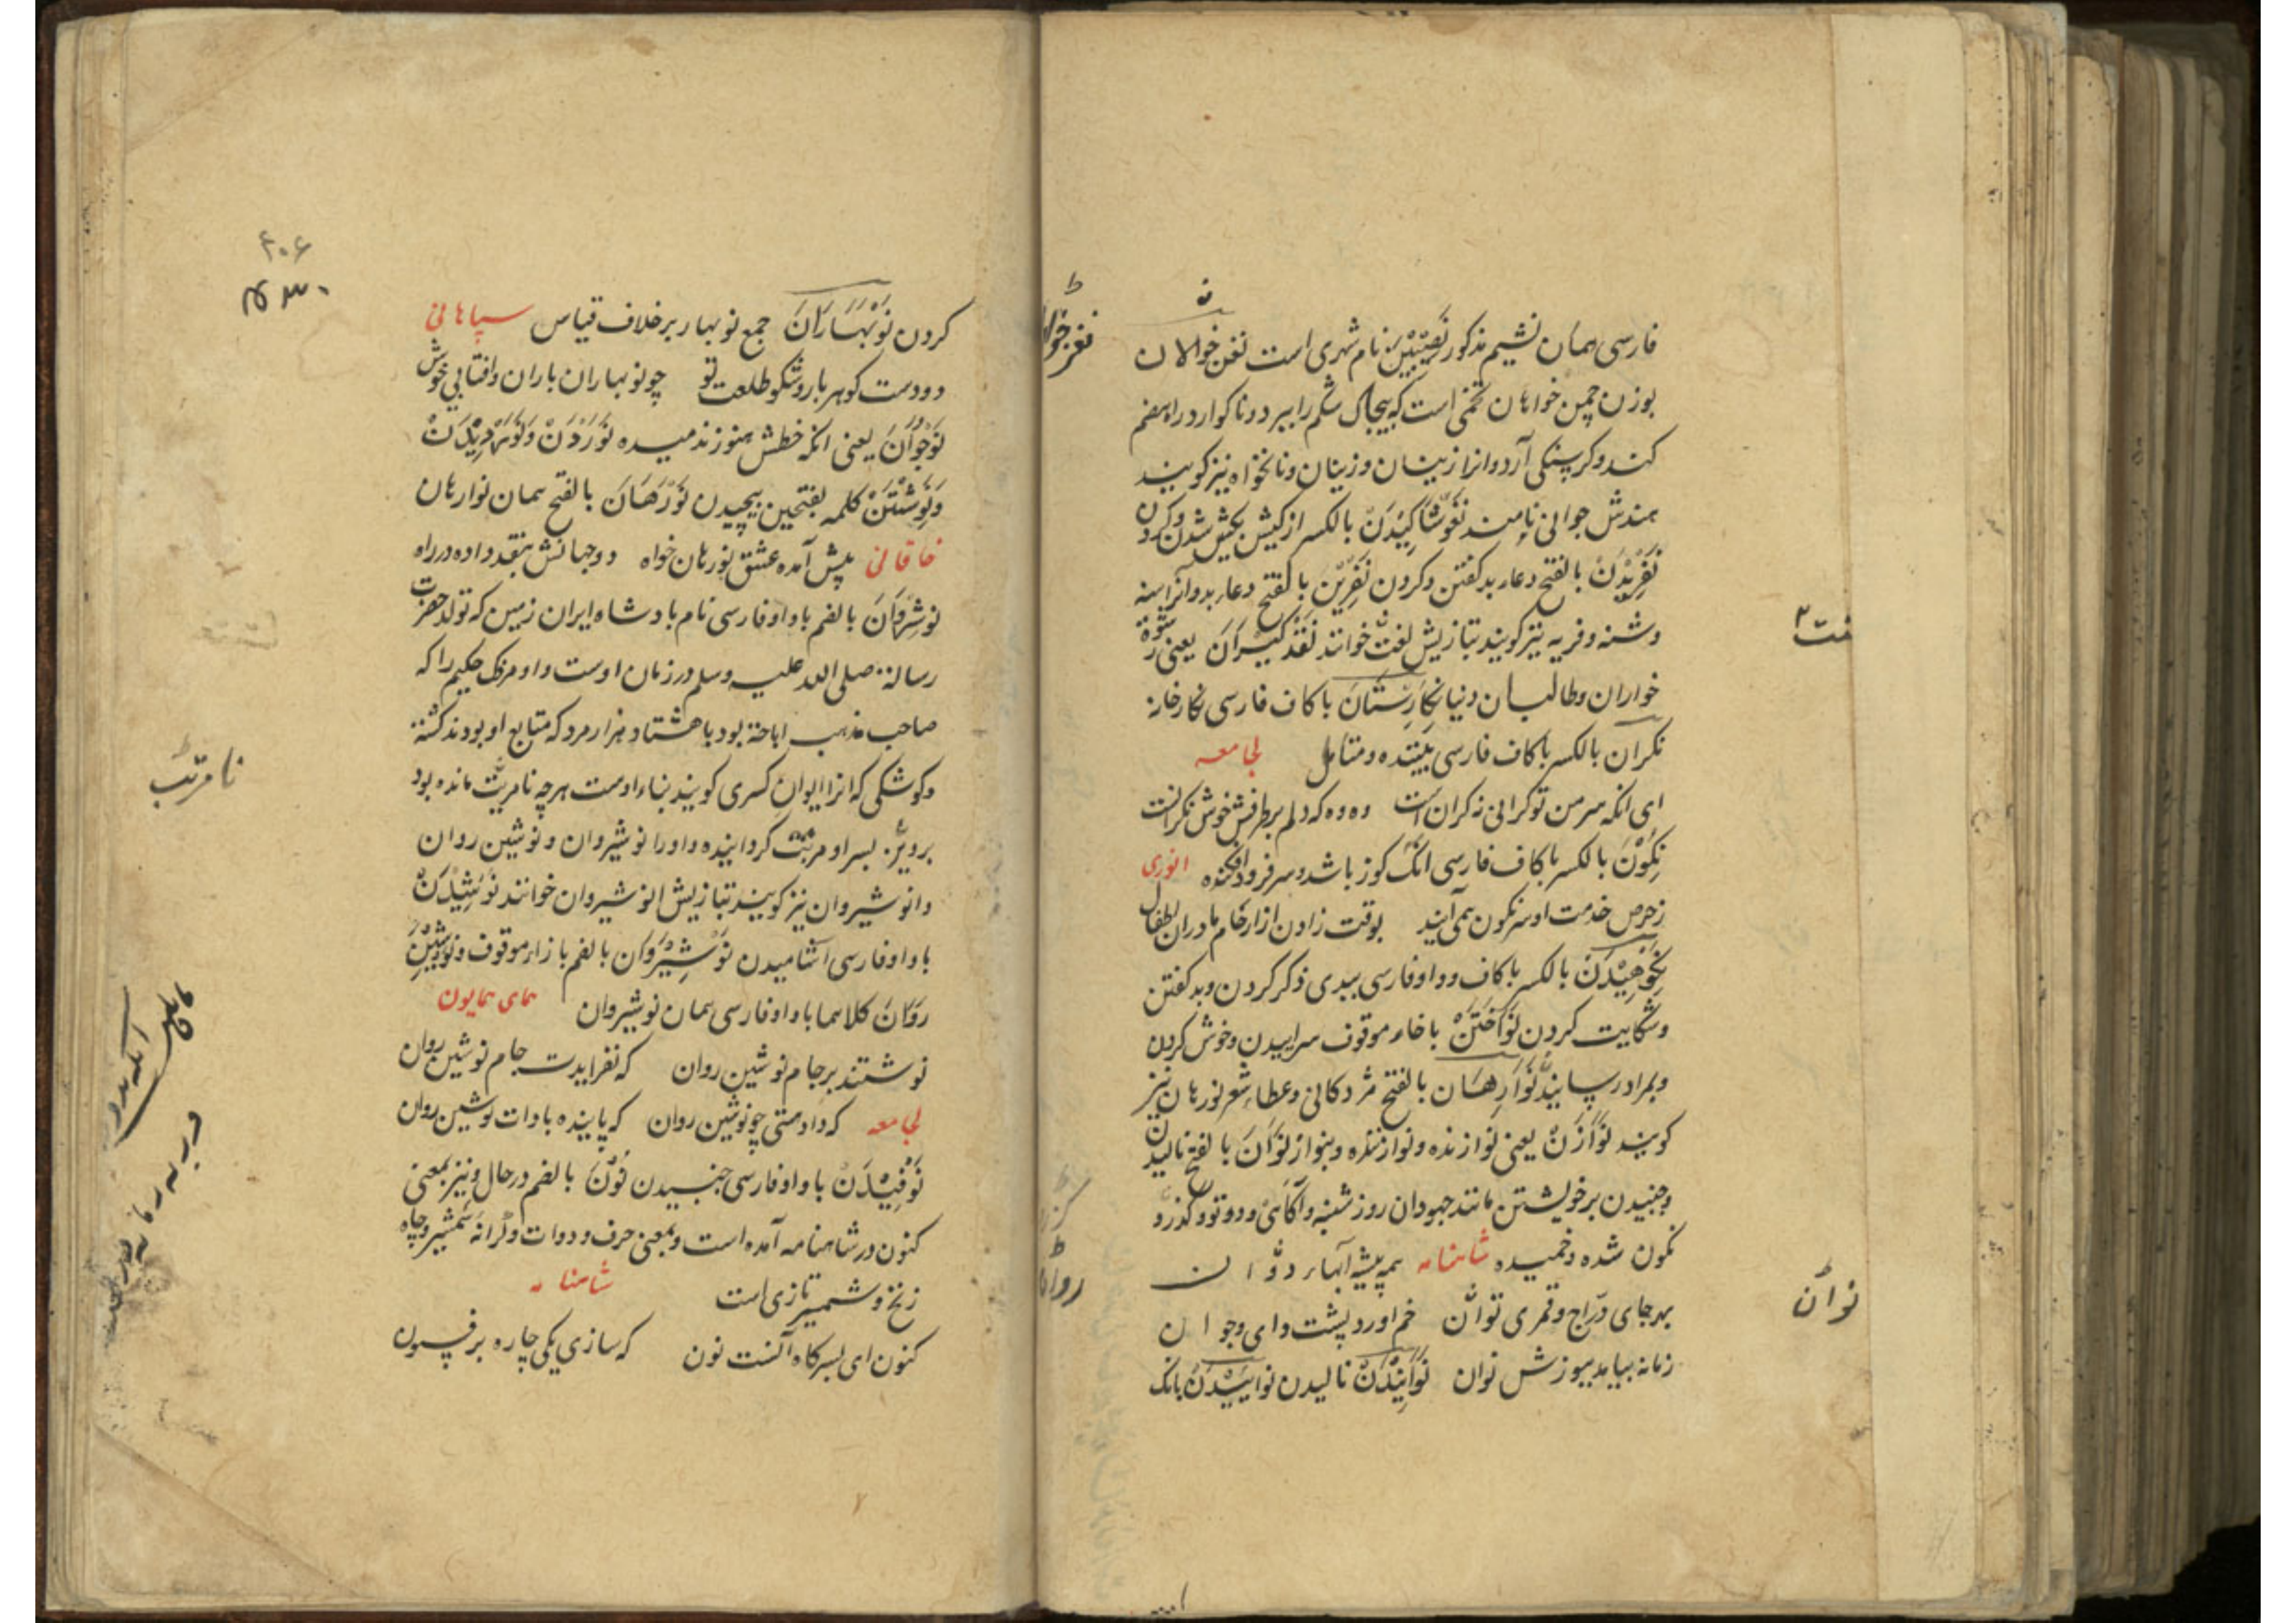 فارسی همان نشیم مذکور نَصِیْبِیْن نام شهری است نغن خوالان
بوزن چمن خواهان تخمی است که بیچاک شکم را ببرد و ناکوارد راهضم
کند و کرسنکی آرد و انرا زینان و زنیان و نانخواه نیز کویند
هندش جوانی نامند نغوشاکیدن بالکسر از کیش بکیش شدن و کردن
نَفْرِیْدَنْ بالفتح دعاء بد کفتن و کردن نَفْرِیْن بالفتح دعاء بد و آنرا سنه
و شنه و فریه نیز کویند بتازیش لغت خوانند نَقْد کیْرَانَ یعنی رشوة
خواران و طالبان دنیا نِکَارِسْتَانَ با کاف فارسی نکارخانه
نکران بالکسر با کاف فارسی بیننده و متامل لجامعه
ای انکه سر من تو کرانی ز کران است وه وه که دلم بر طرفش خوش نکرانست
نِکُوْنَ بالکسر با کاف فارسی انک کوز باشد و سر فرود افکنده انوری
ز حرص خدمت او سرنکون همی آیند بوقت زادن از ارحام مادران اطفال
نِکُوْهِیْدَنَ بالکسر با کاف و واو فارسی ببدی ذکر کردن و بد کفتن
و شکایت کردن نَوَاخْتَنْ با خاء موقوف سراییدن و خوش کردن
و بمراد رسانیدن نَوَارِهَان بالفتح مژدکانی و عطاء شعر نورهان نیز
کویند نَوَازَنْ یعنی نوازنده و نوازنده و بنواز نَوَانَ بالفتح نالیدن
و جنبیدن بر خویشتن مانند جهودان روز شنبه و آکاهی و دوتو و کذرو
نکون شده و خمیده شاهنامه همه پیشه آبهاء دوان
بهر جای درّاج و قمری نوان خم اورد پشت و ای جوان
زمانه بیامد بپوزش نوان نَوَانِیْدَنْ نالیدن نواییدن بانک
نغز خوالان
نوان
۴۰۶
۴۳۰
کردن نَوْبَهَارَانَ جمع نوبهار بر خلاف قیاس سپاهانی
دو دست کوهر بار و شکو طلعت تو چو نوبهاران باران و افتابی خوش
نَوْجُوَانَ یعنی انکه خطش هنوز ندمیده نَوَرْدَنْ و نَوَرْدِیْدَنْ
وَنَوِشْتَنْ کلمه بفتحین پیچیدن نَوْرَهَانَ بالفتح همان نوارهان
خاقانی پیش آمده عشق نورهان خواه دو جهانش بنقد داده در راه
نوشِرْوَانَ بالضم با واو فارسی نام بادشاه ایران زمین که تولد حضرت
رسالة صلی الله علیه وسلم در زمان اوست و او مزدک حکیم را که
صاحب مذهب اباحة بود با هشتاد هزار مرد که متابع او بودند کشته
و کوشکی که انرا ایوان کسری کویند بناء اوست هرچه نامرتب مانده بود
پرویز پسر او مرتب کردانیده و او را نوشیروان و نوشین روان
و انوشیروان نیز کویند بتازیش انوشیروان خوانند نوشِیْدَنْ
با واو فارسی اشامیدن نَوْشِیْرَوَان بالضم با زاء موقوف و نوشین
رَوَانَ کلاهما با واو فارسی همان نوشیروان همای همایون
نوشتند بر جام نوشین روان که نفزایدت جام نوشین روان
لجامعه که داد متی چو نوشین روان که پاینده بادات نوشین روان
نَوْفِیْدَنْ با واو فارسی جنبیدن نُوْنَ بالضم در حال و نیز بمعنی
کنون در شاهنامه آمده است و بمعنی حرف و دوات و کرانه شمشیر و چاه
زنخ و شمشیر تازی است شاهنامه
کنون ای پسر کاه آنست نون که سازی یکی چاره بر فسون
نامرتب